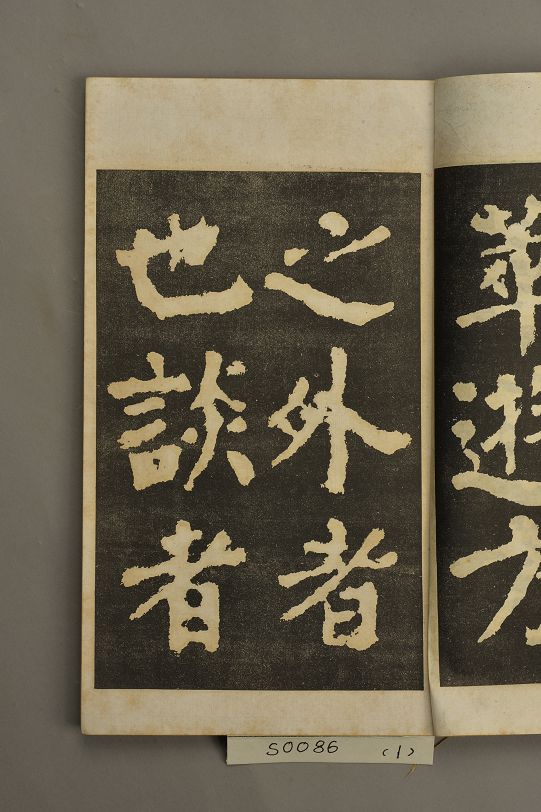 萃遊方
之外者
也談者
S0086 (1)